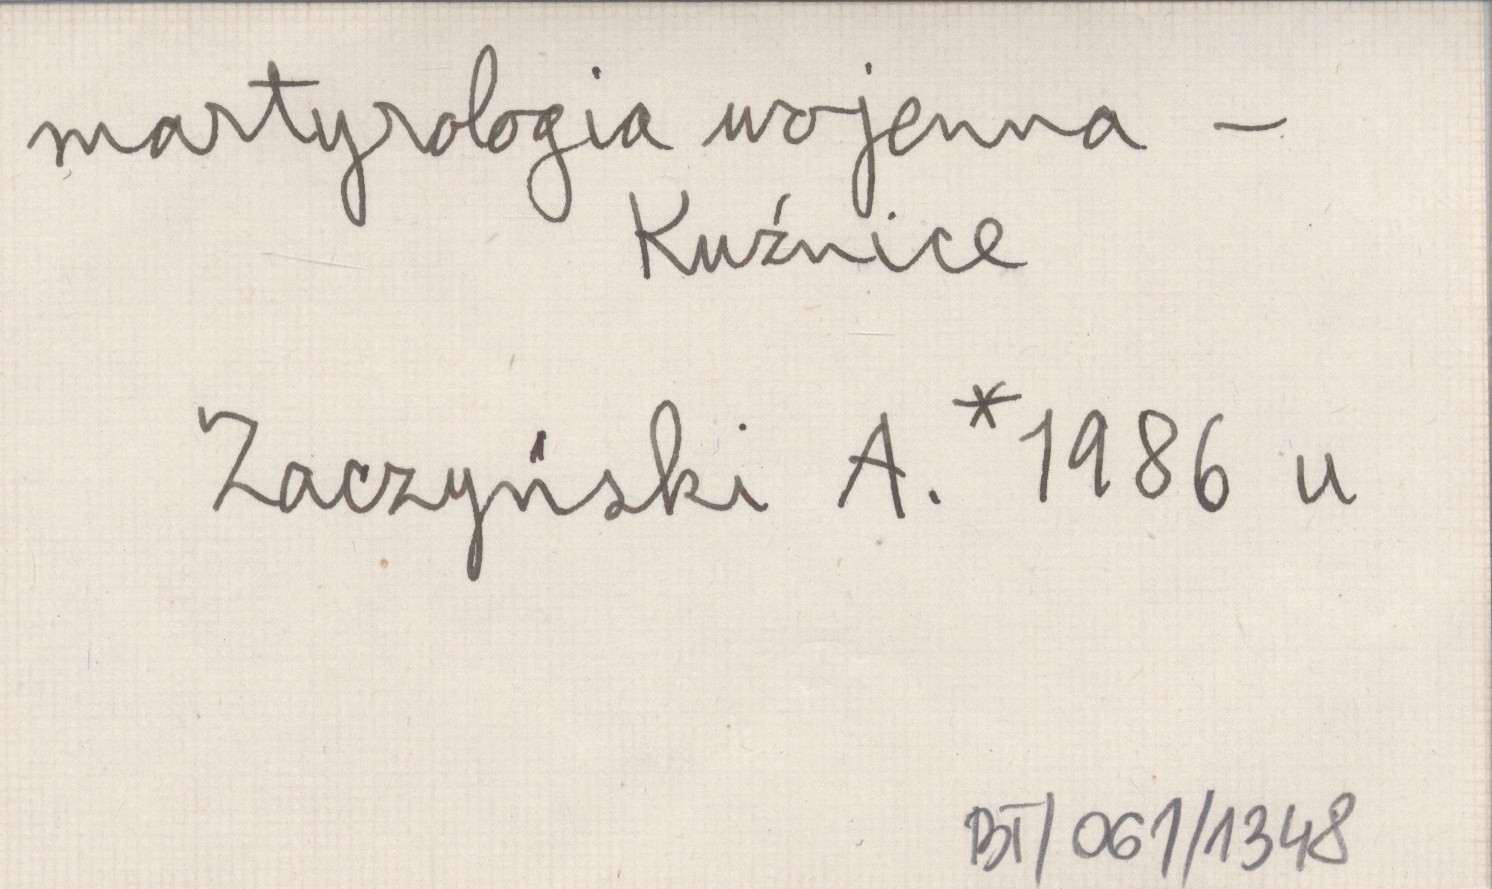 martyrologia wojenna –
Kuźnice
Zaczyński A.*1986 u
BT/061/1348